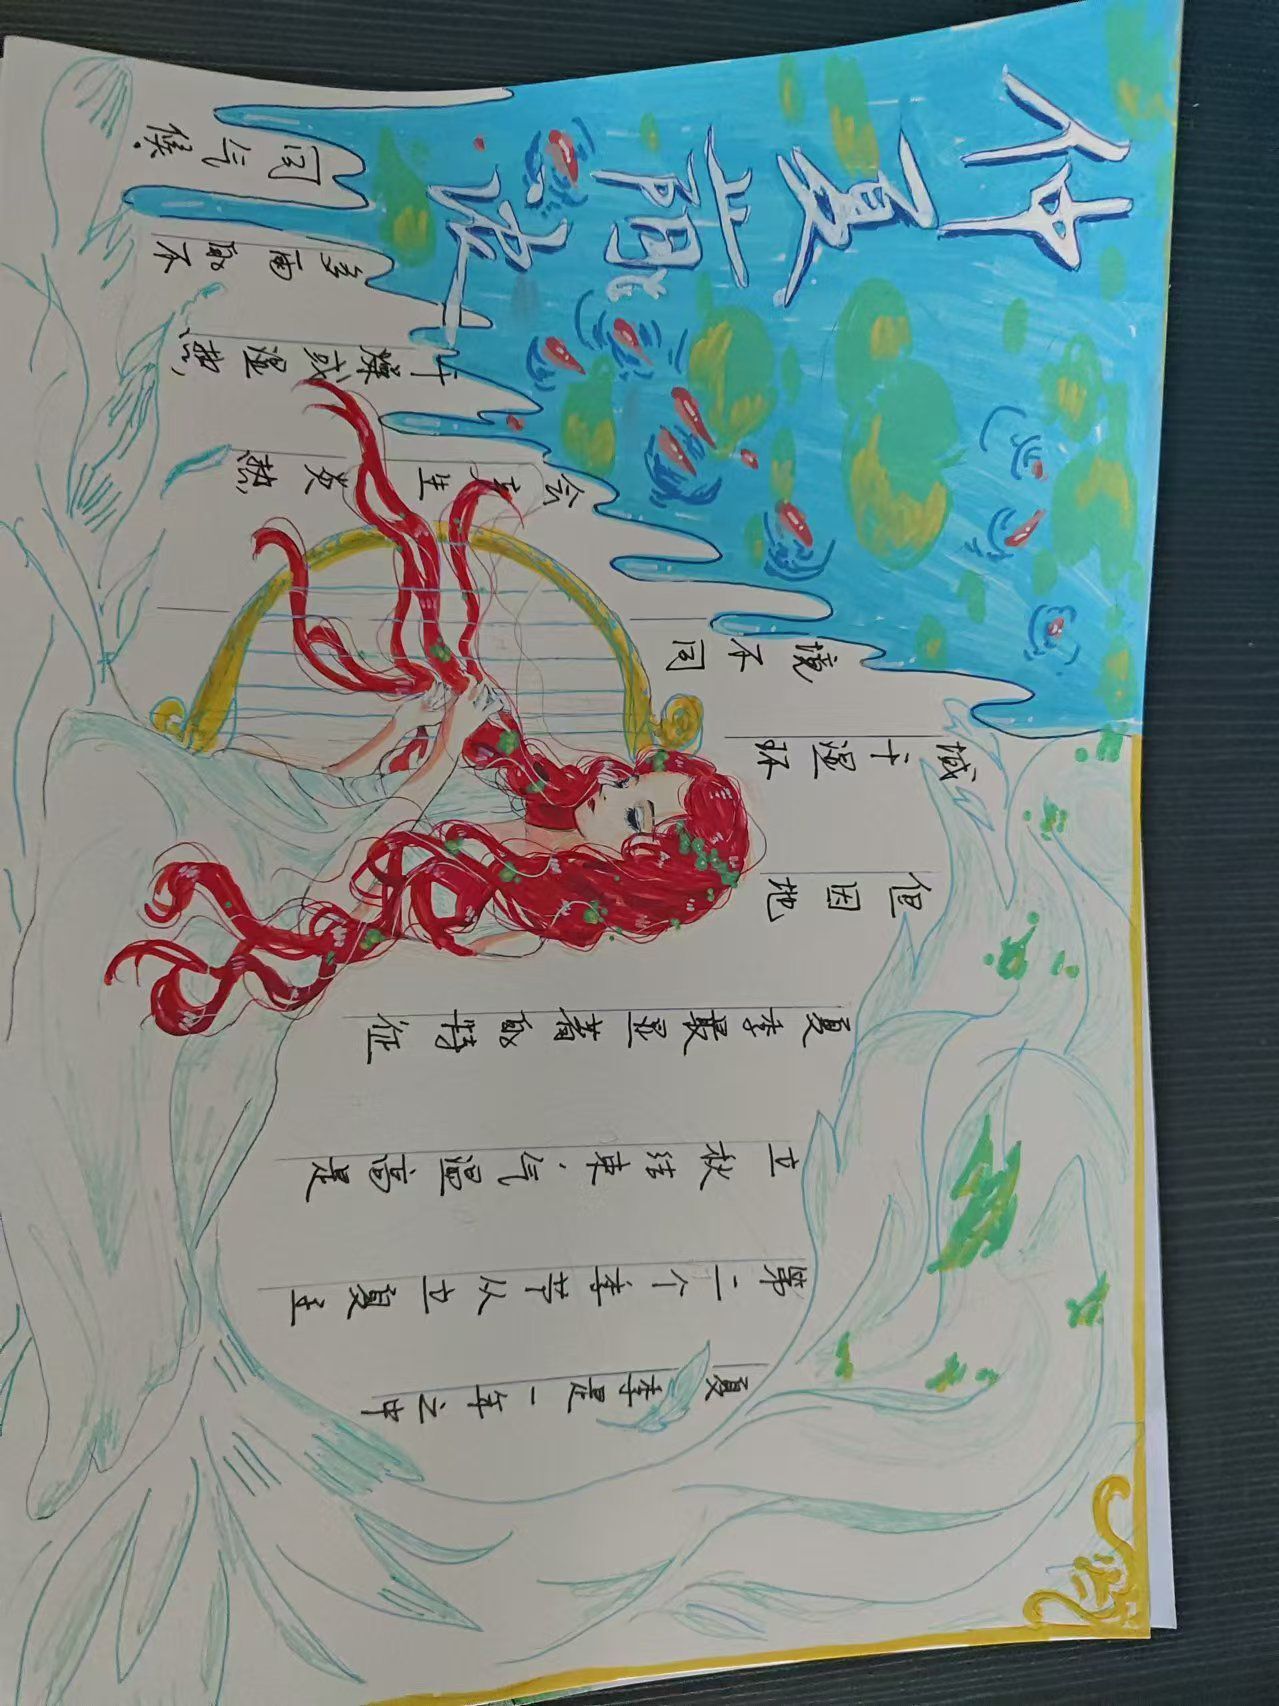 仲夏荫浓
夏季是一年之中
第二个季节从立夏至
立秋结束.气温高是
夏季最显著的特征
但因地
域干湿环
境不同
会产生炎热,
干燥或湿热,
多雨的不
同气候.